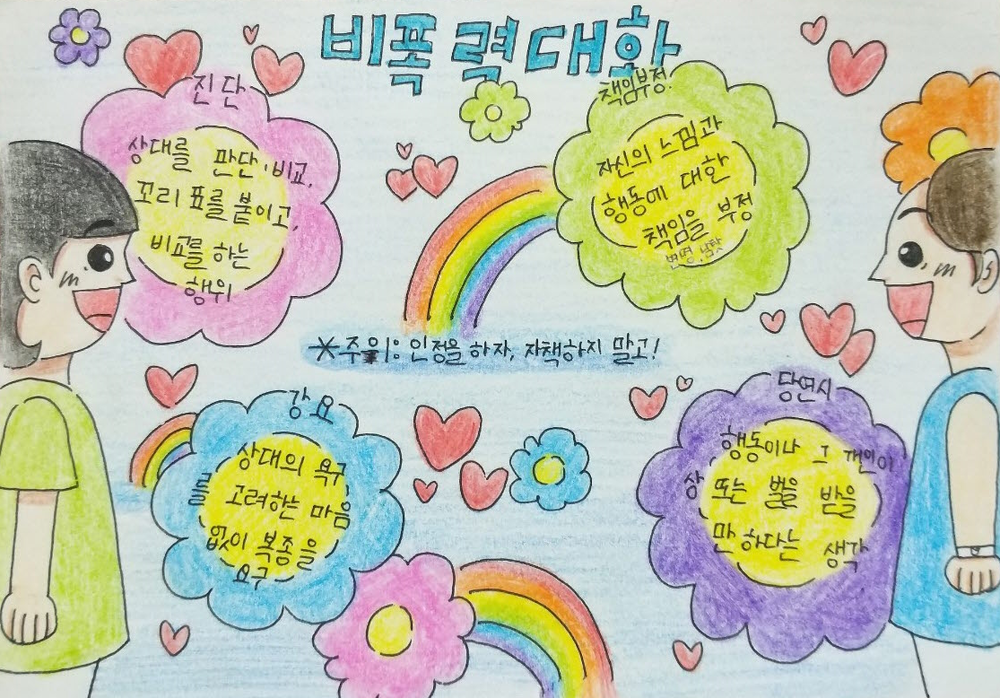 비폭력대화
진단
상대를 판단, 비교,
꼬리표를 붙이고,
비교를 하는
행위
책임부정.
자신의 느낌과
행동에 대한
책임을 부정
변명,
*주의: 인정을 하자, 자책하지 말고!
강요
상대의 욕구를
고려하는 마음
없이 복종을
요구
당연시
행동이나 그 개인이
상 또는 벌을 받을
만하다는 생각